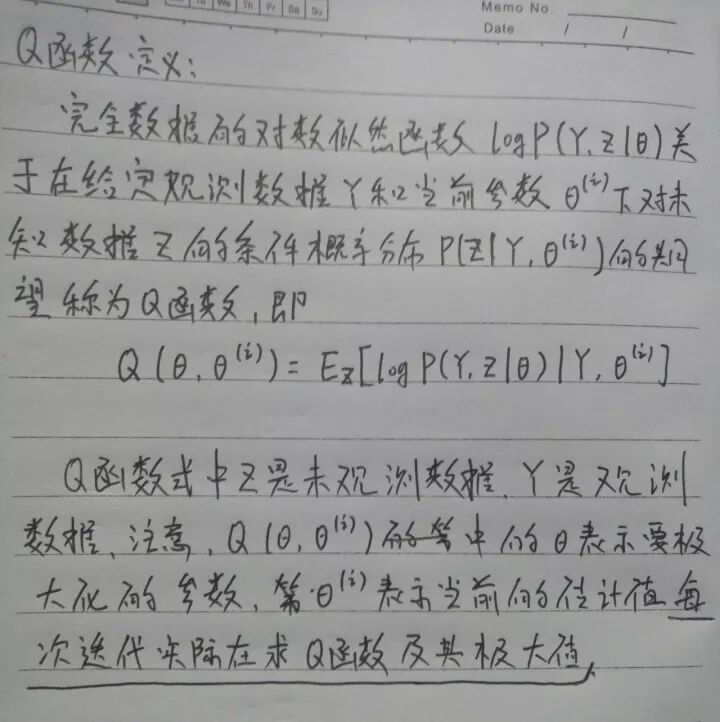 Tu We Th Fr Sa Su
Memo No.
Date / /
Q函数定义:
完全数据的对数似然函数 logP(Y,Z|θ)关
于在给定观测数据Y和当前参数θ⁽ⁱ⁾下对未
知数据Z的条件概率分布P(Z|Y,θ⁽ⁱ⁾)的期
望称为Q函数,即
Q(θ,θ⁽ⁱ⁾)=E_Z[logP(Y,Z|θ)|Y,θ⁽ⁱ⁾]
Q函数式中Z是未观测数据、Y是观测
数据、注意,Q(θ,θ⁽ⁱ⁾)中的θ表示要极
大化的参数,第θ⁽ⁱ⁾表示当前的估计值每
次迭代实际在求Q函数及其极大值,